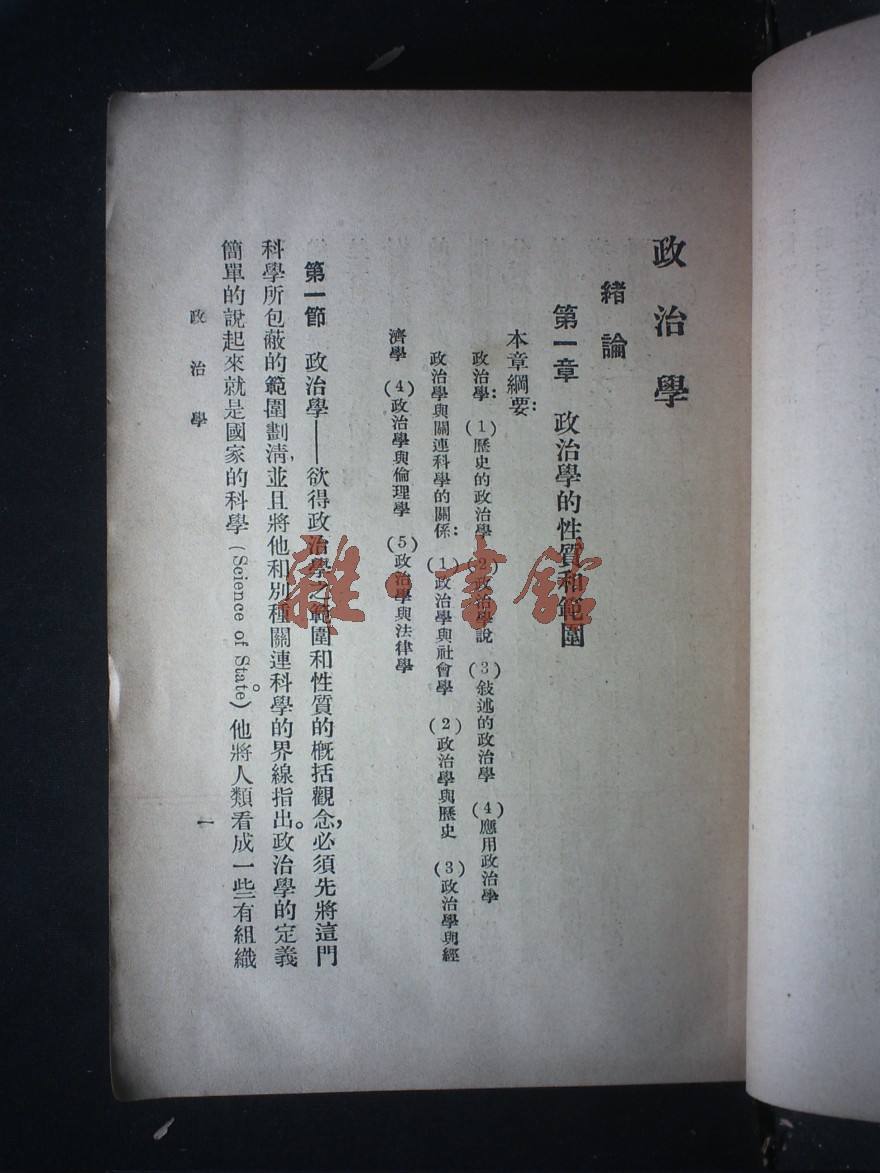 政治學
緒論
第一章 政治學的性質和範圍
本章綱要：
政治學：（1）歷史的政治學（2）政治學說（3）敍述的政治學（4）應用政治學
政治學與關連科學的關係：（1）政治學與社會學（2）政治學與歷史（3）政治學與經
濟學（4）政治學與倫理學（5）政治學與法律學
第一節 政治學——欲得政治學之範圍和性質的槪括觀念，必須先將這門
科學所包蔽的範圍劃淸，並且將他和別種關連科學的界線指出。政治學的定義
簡單的說起來就是國家的科學（Science of State）。他將人類看成一些有組織
政治學
一
雜·書館